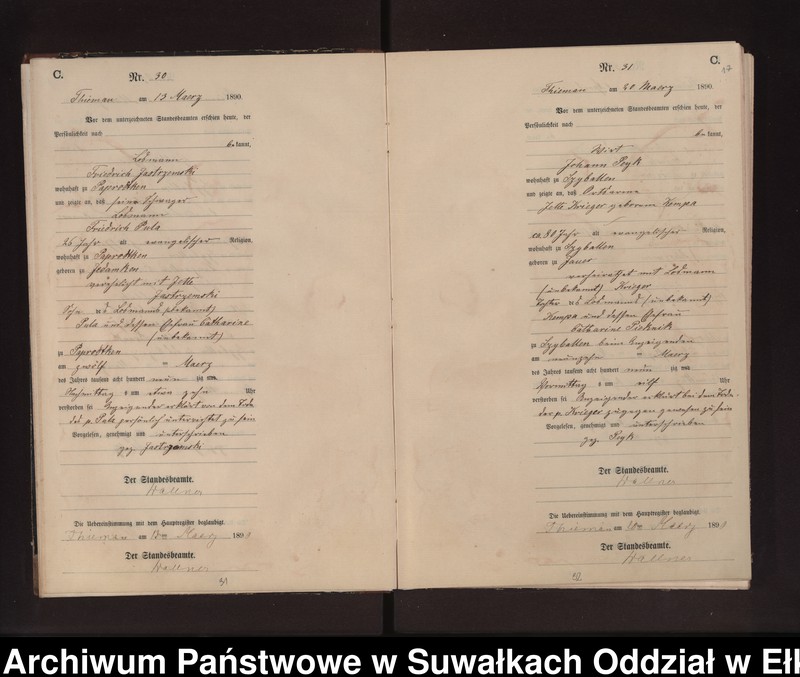 C.
Nr. 30
Thieman am 13 Maerz 1890.
Vor dem unterzeichneten Standesbeamten erschien heute, der
Persönlichkeit nach
bekannt,
Losmann
Friedrich Jastrzemski
wohnhaft zu Paprodtken
und zeigte an, daß seine Schwager
Losmann
Friedrich Pula
26 Jahr alt evangelischer Religion,
wohnhaft zu Paprodtken
geboren zu Jedamken
verehelicht mit Jette
Jastrzemski
Sohn des Losmanns (unbekannt)
Pula und dessen Ehefrau Catharine
(unbekannt)
zu Paprodtken
am zwölf ten Maerz
des Jahres tausend acht hundert neun zig
Nachmittag um etwa zehn Uhr
verstorben sei Anzeigender erklärt von dem Tode
des p. Pula persönlich unterrichtet zu sein
Vorgelesen, genehmigt und unterschrieben
gez. Jastrzemski
Der Standesbeamte.
Wallner
Die Uebereinstimmung mit dem Hauptregister beglaubigt.
Thieman am Maerz 189
Der Standesbeamte.
Wallner
31
C.
17
Nr. 31
Thieman am 20 Maerz 1890.
Vor dem unterzeichneten Standesbeamten erschien heute, der
Persönlichkeit nach
bekannt,
Wirt
Johann Pryk
wohnhaft zu Szyballen
und zeigte an, daß Ortsarme
Jette Krieger geborene Kempa
ca 80 Jahr alt evangelischer Religion,
wohnhaft zu Szyballen
geboren zu Jauer
verheirathet mit Losmann
(unbekannt) Krieger
Tochter des Losmanns (unbekannt)
Kempa und dessen Ehefrau
Catharine Pieknik
zu Szyballen beim Anzeigenden
am neunzehn ten Maerz
des Jahres tausend acht hundert neun zig
Vormittag um elf Uhr
verstorben sei Anzeigender erklärt bei dem Tode
der p. Krieger zugegen gewesen zu sein
Vorgelesen, genehmigt und unterschrieben
gez. Pryk
Der Standesbeamte.
Wallner
Die Uebereinstimmung mit dem Hauptregister beglaubigt.
Thieman am Maerz 189
Der Standesbeamte.
Wallner
Archiwum Państwowe w Suwałkach Oddział w Ełk